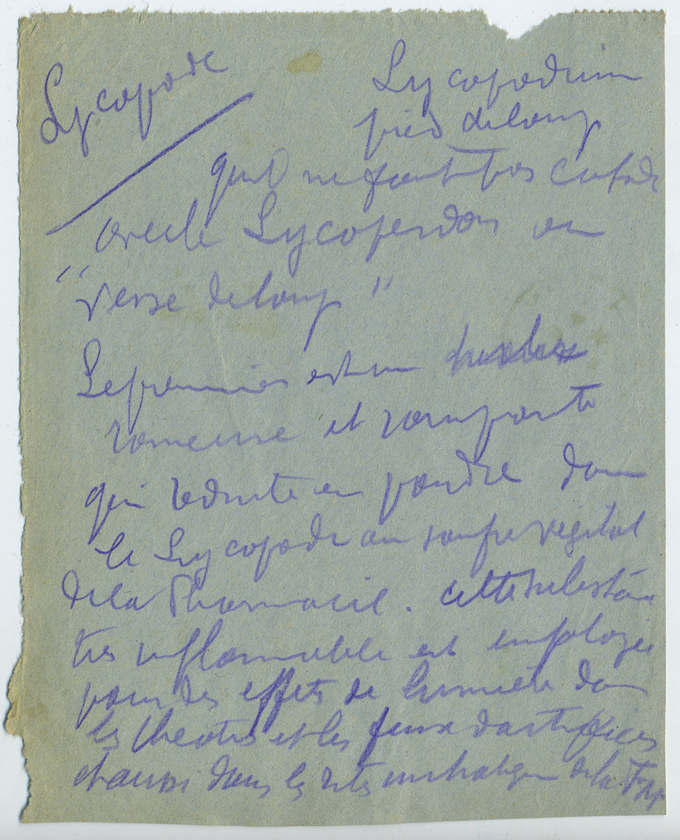 Lycopode
Lycopodium
pied de loup
qu'il ne faut pas confondre
avec le Lycoperdon ou
"vesse de loup"
Le premier est un
rameuse et rampante
qui reduite en poudre donne
le Lycopode ou soufre vegetal
de la Pharmacie. Cette substance
tres inflammable est employée
pour des effets de lumiere dans
les theatres et les feux d'artifices
et aussi dans les rites de la F∴M∴